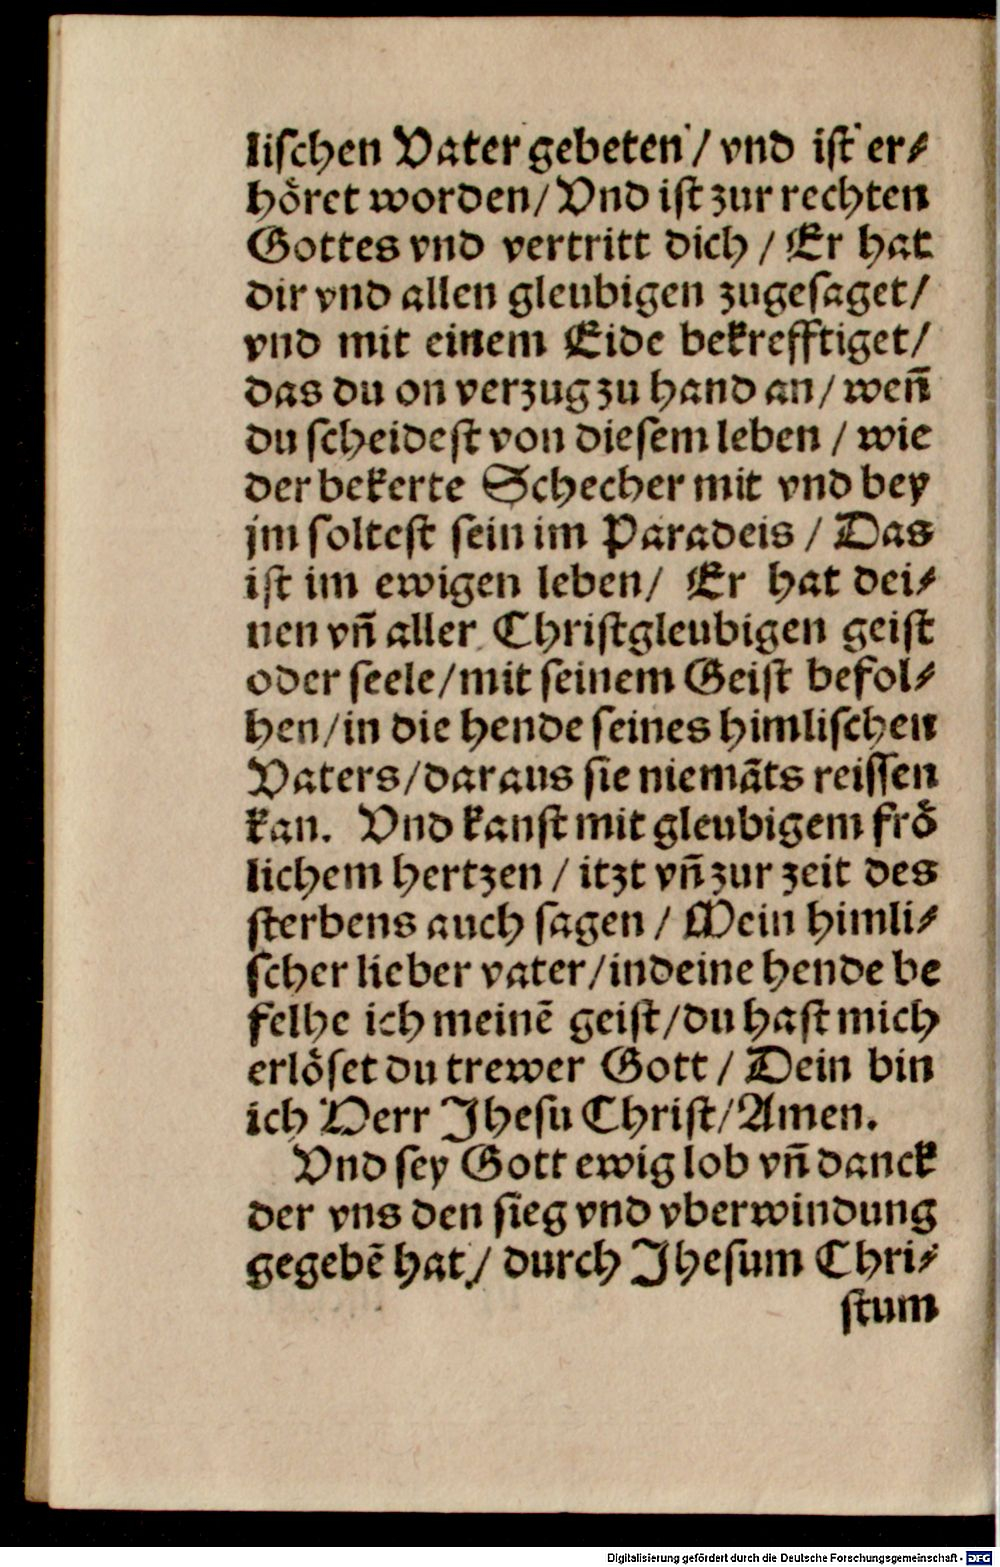 liſchen Vater gebeten / vnd iſt er⸗
hoͤret worden / Vnd iſt zur rechten
Gottes vnd vertritt dich / Er hat
dir vnd allen gleubigen zugeſaget /
vnd mit einem Eide bekrefftiget /
das du on verzug zu hand an / weñ
du ſcheideſt von dieſem leben / wie
der bekerte Schecher mit vnd bey
jm ſolteſt ſein im Paradeis / Das
iſt im ewigen leben / Er hat dei⸗
nen vñ aller Chriſtgleubigen geiſt
oder ſeele / mit ſeinem Geiſt befol⸗
hen / in die hende ſeines himliſchen
Vaters / daraus ſie niemãts reiſſen
kan. Vnd kanſt mit gleubigem froͤ
lichem hertzen / itzt vñ zur zeit des
ſterbens auch ſagen / Mein himli⸗
ſcher lieber vater / in deine hende be
felhe ich meinẽ geiſt / du haſt mich
erloͤſet du trewer Gott / Dein bin
ich Herr Jheſu Chriſt / Amen.
Vnd ſey Gott ewig lob vñ danck
der vns den ſieg vnd vberwindung
gegebẽ hat / durch Jheſum Chri⸗
ſtum
Digitalisierung gefördert durch die Deutsche Forschungsgemeinschaft - DFG